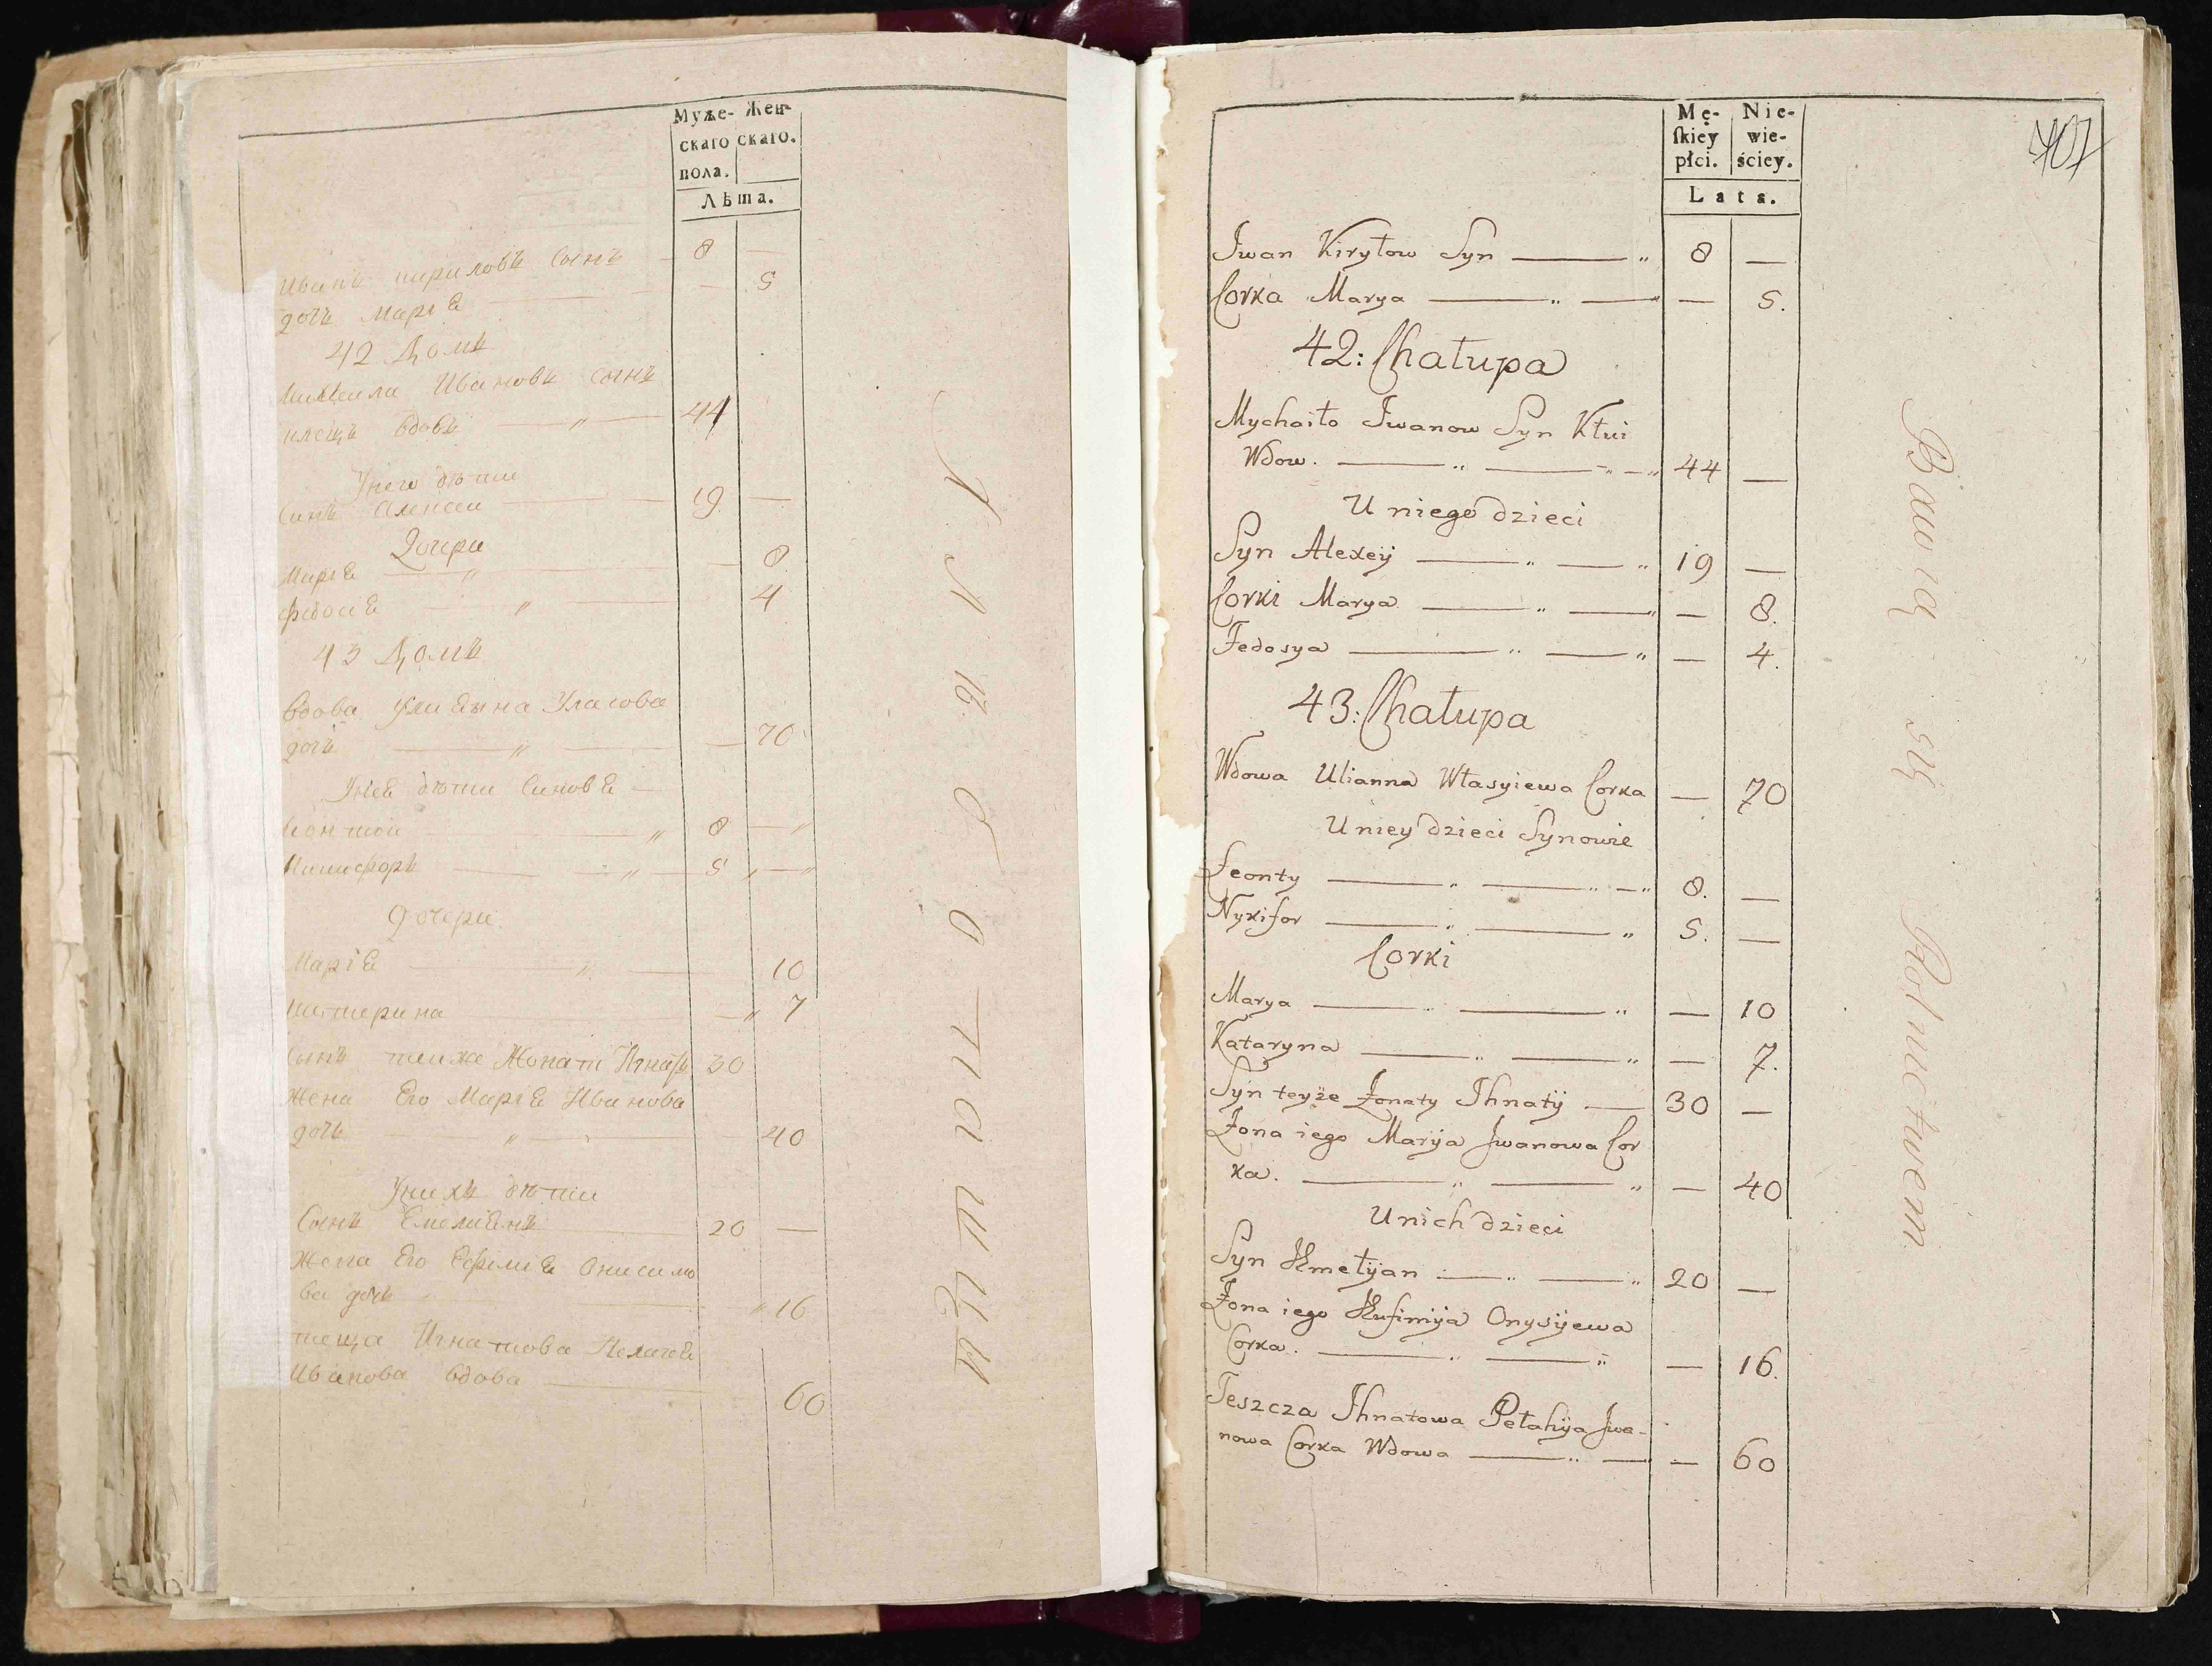 Муже- Жен-
скаго скаго.
пола.
Лѣта.
Иванъ кириловъ Сынъ — 8 —
дочь Маріѣ — — 5
42 Домъ
Михаила Ивановъ Сынъ
клецъ вдовъ — „ — 44
Унего дѣти
Синъ Алексеи — 19 —
Дочери
Маріѣ — „ — 8
федосіѣ — „ — 4
43 Домъ
Вдова Улиѣнна Уласова
дочь — „ — — 70
Унеѣ дѣти Синовѣ —
Леонтои — „ 8 — „
Никифоръ — „ — 5 „ — „
Дочери
Маріѣ — „ — 10
Катерина — „ 7
Сынъ теиже Жонати Игнатъ 30
Жена Его Маріѣ Иванова
дочь — „ — 40
Унихъ дѣти
Сынъ Емелиѣнъ — 20 —
Жена Его Еѳиміѣ Онисимо
ва дочь — „ 16
теща Игнатова Пелагеѣ
Иванова вдова — 60
Mę- Nie-
ſkiey wie-
płci. ściey.
Lata.
407
Jwan Kiryłow Syn — „ 8 —
Corka Marya — „ — „ — 5.
42: Chałupa
Mychaiło Jwanow Syn Kłui
Wdow. — „ — „ — „ 44 —
U niego dzieci
Syn Alexey — „ — „ 19 —
Corki Marya — „ — „ — 8.
Fedosya — „ — „ — 4.
43: Chałupa
Wdowa Ulianna Własyiewa Corka — 70
U niey dzieci Synowie
Leonty — „ — „ — „ 8. —
Nykifor — „ — „ 5. —
Corki
Marya — „ — „ — 10
Kataryna — „ — „ — 7.
Syn teyże Żonaty Jhnatÿ — 30 —
Żona iego Marÿa Jwanowa Cor
ka. — „ — „ — 40
U nich dzieci
Syn Emelÿan — „ — „ 20 —
Żona iego Eufimÿa Onysÿewa
Corka. — „ — „ — 16.
Teszcza Jhnatowa Pełahÿa Jwa-
nowa Corka Wdowa — „ — — 60
Bawią się Rolnictwem